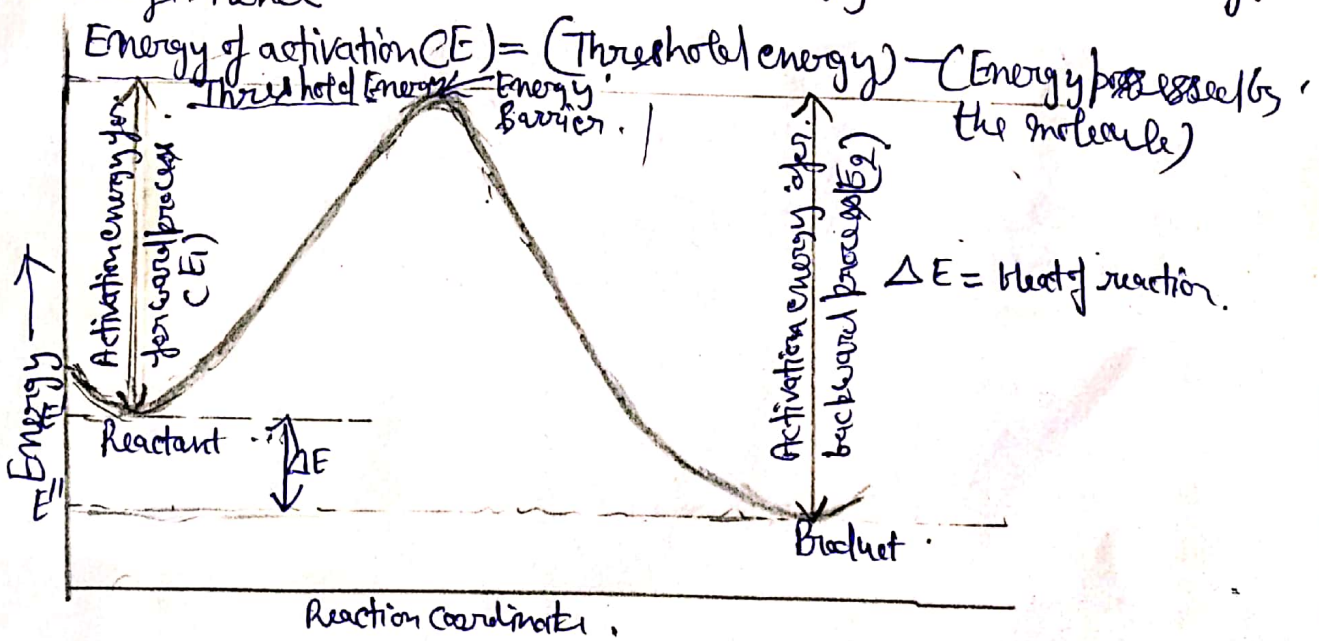 Energy of activation (E) = (Threshold energy) - (Energy possessed by
the molecule)
Threshold Energy
Energy
Barrier.
Activation energy for
forward process
(E1)
Activation energy for
backward process (E2)
ΔE = Heat of reaction.
Energy →
Reactant
ΔE
E"
Product.
Reaction coordinate.